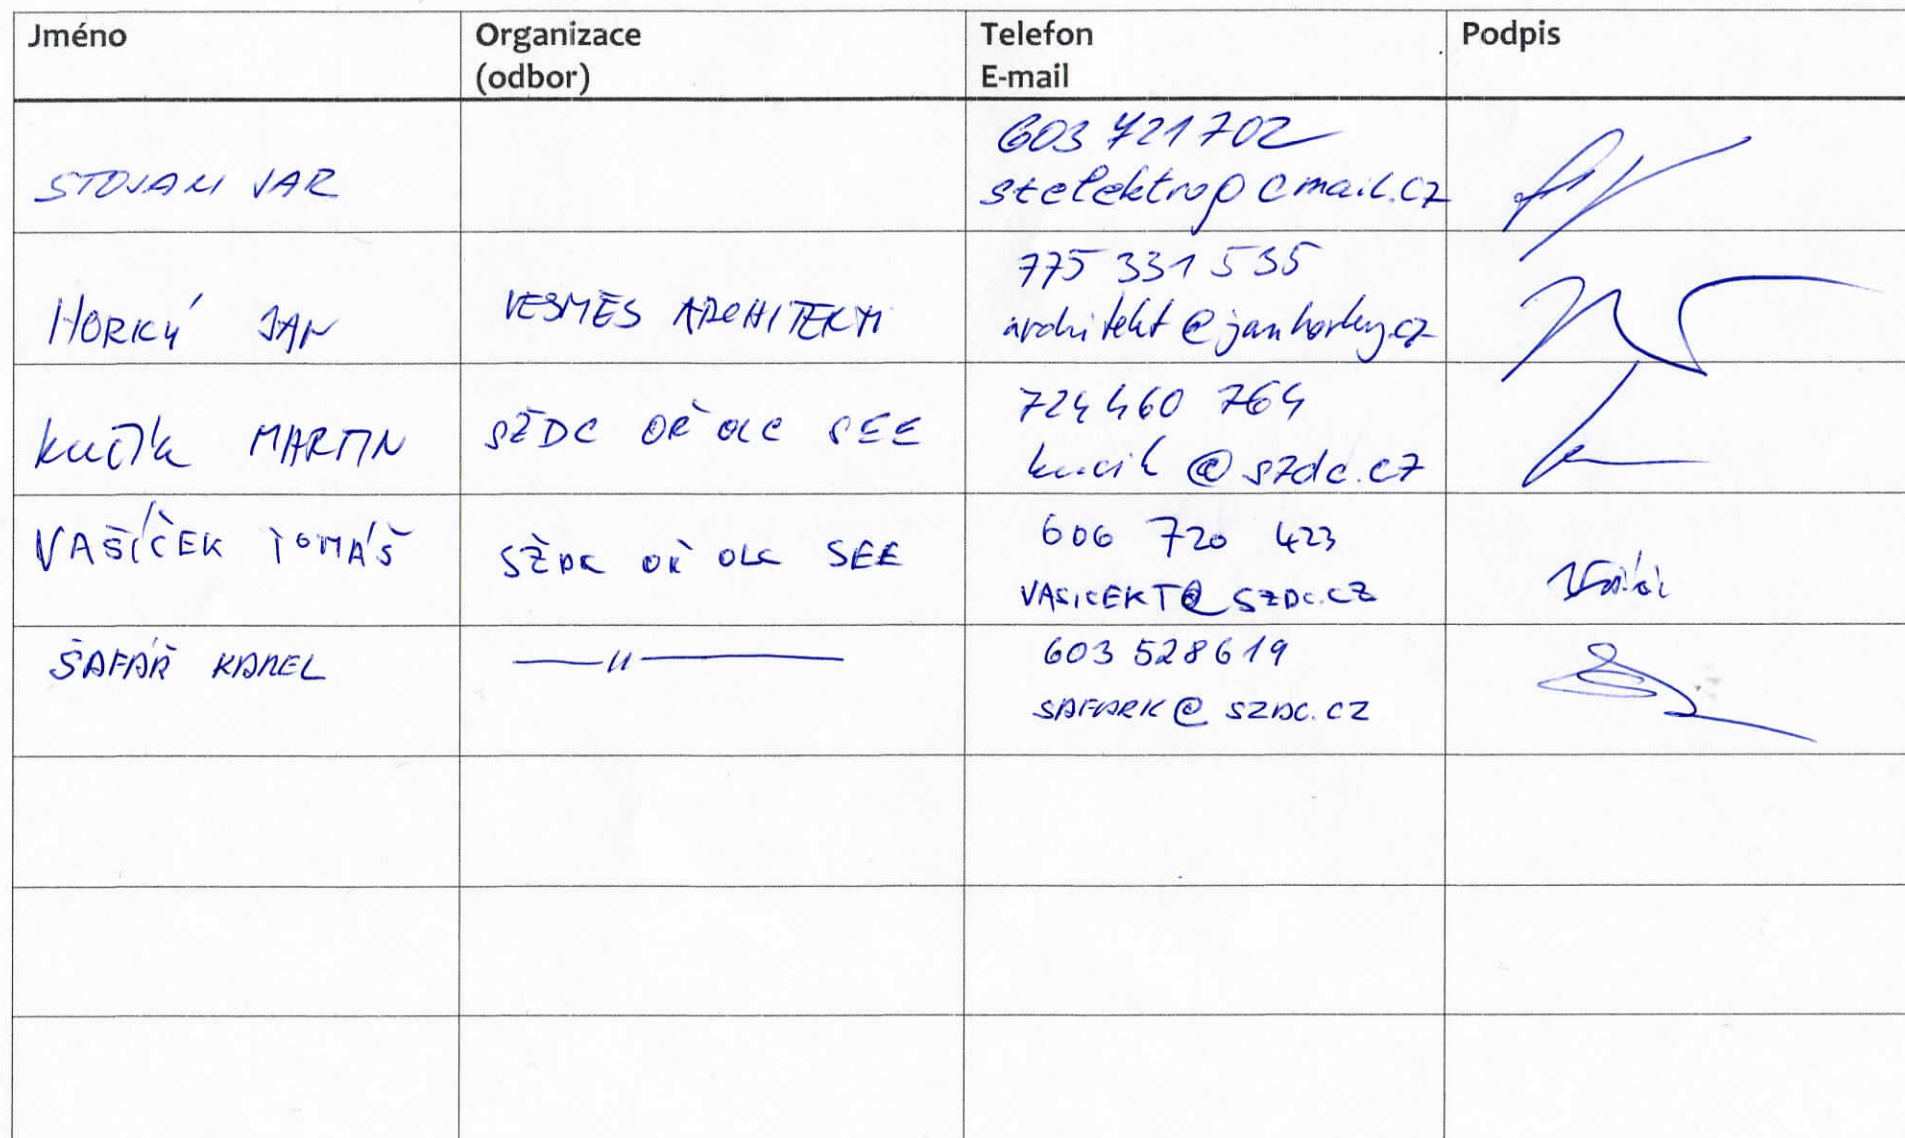 Jméno
Organizace
(odbor)
Telefon
E-mail
Podpis
STOJAN JAR
603 721 702
stelektrop@email.cz
HORKÝ JAN
VESMĚS ARCHITEKTI
775 331 535
architekt@janhorky.cz
KUČÍK MARTIN
SŽDC OŘ OLC SEE
724 460 764
kucik@szdc.cz
VAŠÍČEK TOMÁŠ
SŽDC OŘ OLC SEE
606 720 423
VASICEKT@SZDC.CZ
ŠAFÁŘ KAREL
—"—
603 528 619
SAFARK@SZDC.CZ